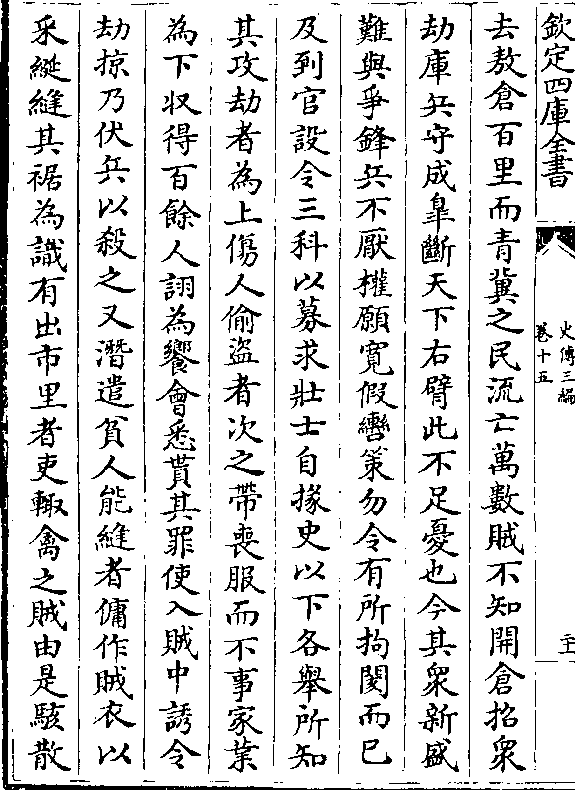 欽定四庫全書
史傳三編
卷十五
去敖倉百里而青冀之民流亡萬數賊不知開倉招衆
劫庫兵守成臯斷天下右臂此不足憂也今其衆新盛
難與爭鋒兵不厭權願寛假轡策勿令有所拘閡而已
及到官設令三科以募求壯士自掾史以下各舉所知
其攻劫者為上傷人偷盜者次之帶喪服而不事家業
為下収得百餘人詡為饗會悉貰其罪使入賊中誘令
劫掠乃伏兵以殺之又潛遣貧人能縫者傭作賊衣以
采綖縫其裾為識有出市里者吏輙禽之賊由是駭散